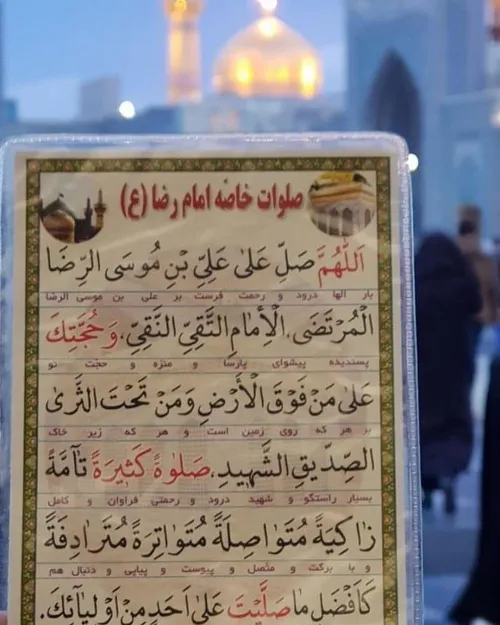 صلوات خاصّه امام رضا (ع)
اَللّٰهُمَّ صَلِّ عَلىٰ عَلِيِّ بْنِ مُوسَى الرِّضَا
بار الها درود و رحمت فرست بر علی بن موسی الرضا
الْمُرْتَضَى، الْأِمَامِ التَّقِيِّ النَّقِيِّ، وَحُجَّتِكَ
پسندیده پیشوای پارسا و منزه و حجت تو
عَلىٰ مَنْ فَوْقَ الْأَرْضِ وَمَنْ تَحْتَ الثَّرىٰ
بر هر که روی زمین است و هر که زیر خاک
الصِّدّيقِ الشَّهيدِ، صَلٰوةً كَثيرَةً تآمَّةً
بسیار راستگو و شهید درود و رحمتی فراوان و کامل
زاكِيَةً مُتَوٰاصِلَةً مُتَوٰاتِرَةً مُتَرٰادِفَةً
و با برکت و متّصل و پیوست و پیاپی و دنبال هم
كَاَفْضَلِ مٰا صَلَّيْتَ عَلىٰ اَحَدٍ مِنْ اَوْلِيٰآئِكَ.